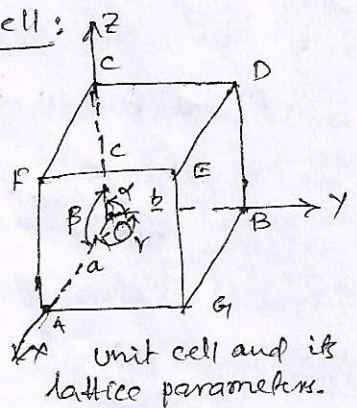 ell:
Z
C
D
C
F
E
α
β
b
Y
B
γ
a
A
G
X
unit cell and its
lattice parameters.